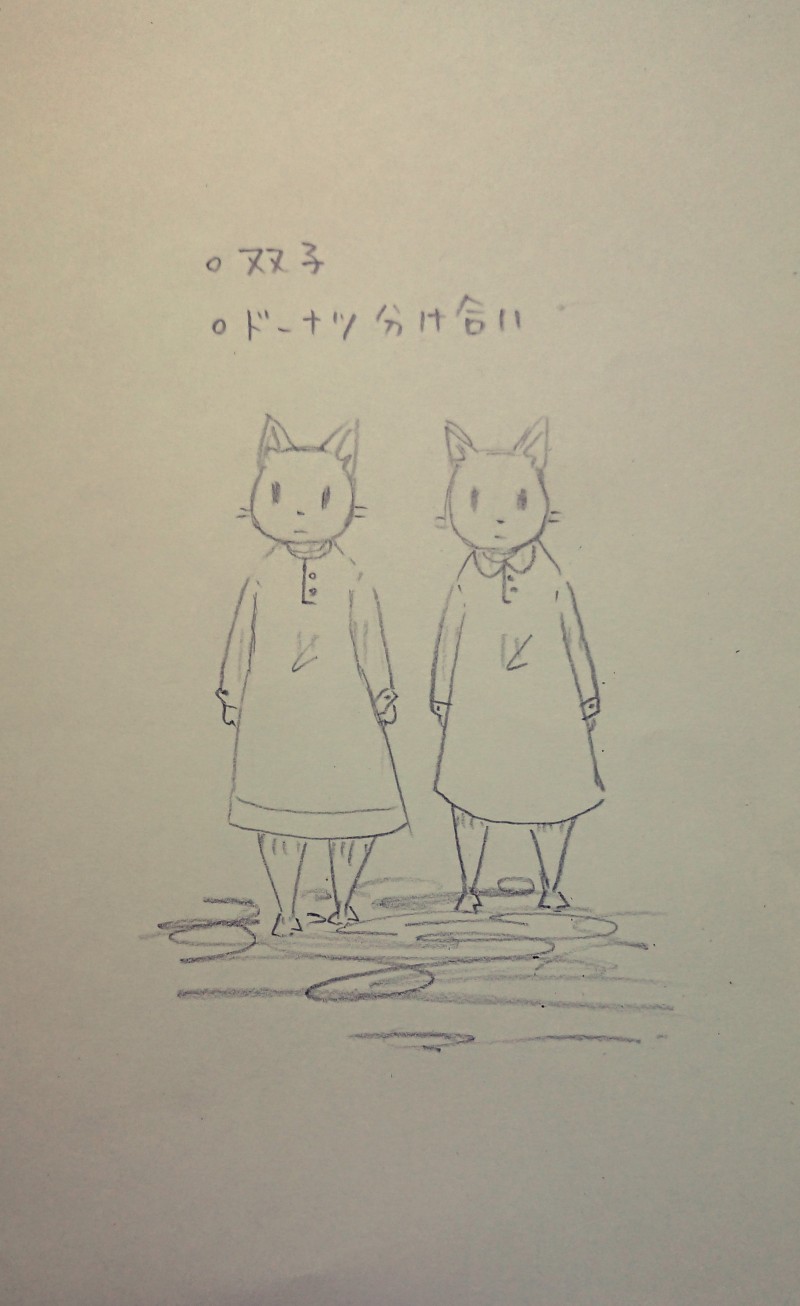 ○ 双子
○ ドーナツ分け合い